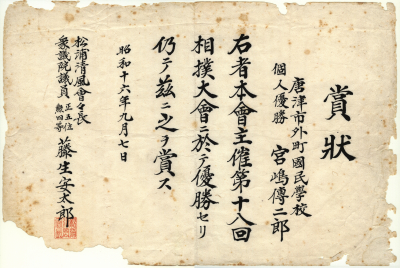 賞狀
唐津市外町國民學校
個人優勝 宮嶋傳二郎
右者本會主催第十八回
相撲大會ニ於テ優勝セリ
仍テ茲ニ之ヲ賞ス
昭和十六年九月七日
松浦清風會々長
衆議院議員 正五位 勲四等 藤生安太郎